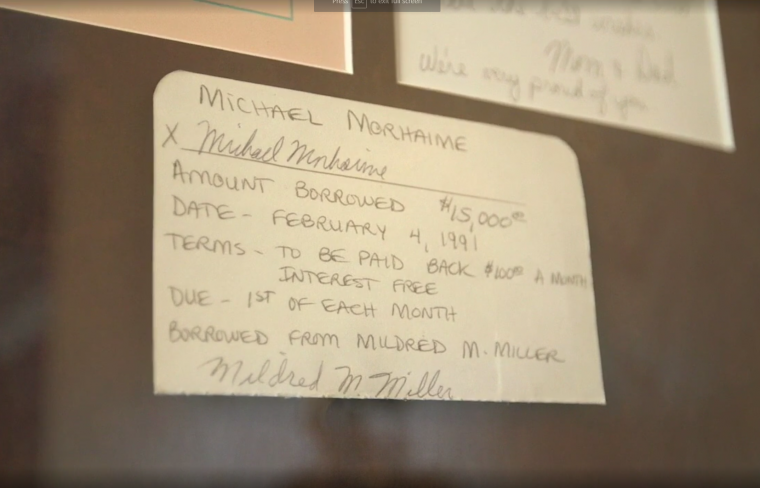 Press Esc to exit full screen
Mom & Dad
We're very proud of you
MICHAEL MORHAIME
X Michael Morhaime
AMOUNT BORROWED $15,000.00
DATE - FEBRUARY 4, 1991
TERMS - TO BE PAID BACK $100.00 A MONTH
INTEREST FREE
DUE - 1ST OF EACH MONTH
BORROWED FROM MILDRED M. MILLER
Mildred M. Miller